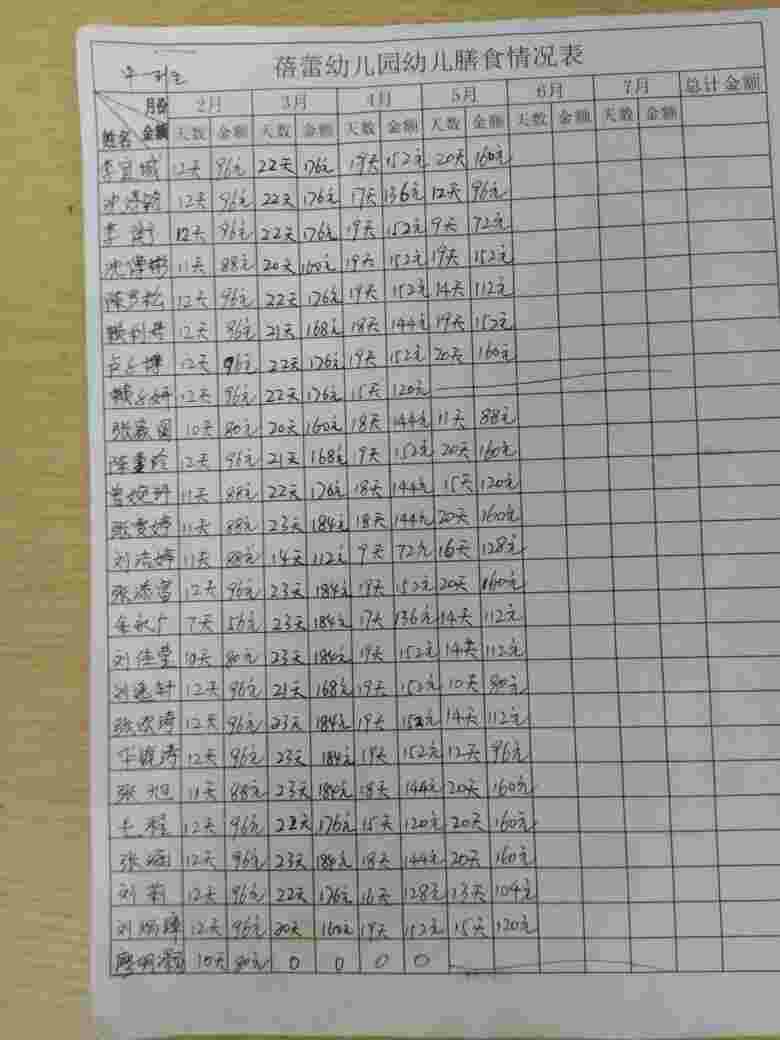 蓓蕾幼儿园幼儿膳食情况表
月份 2月 3月 4月 5月 6月 7月 总计金额
姓名 金额 天数 金额 天数 金额 天数 金额 天数 金额 天数 金额 天数 金额
李宜城 12天 96元 22天 176元 19天 152元 20天 160元
12天 96元 22天 176元 17天 136元 12天 96元
李 12天 96元 22天 176元 19天 152元 9天 72元
沈 彬 11天 88元 20天 160元 19天 152元 19天 152元
陈 松 12天 96元 22天 176元 19天 152元 14天 112元
赖利 12天 96元 21天 168元 18天 144元 19天 152元
卢 12天 96元 22天 176元 19天 152元 20天 160元
赖 妍 12天 96元 22天 176元 15天 120元
张 10天 80元 20天 160元 18天 144元 11天 88元
陈 玲 12天 96元 21天 168元 19天 152元 20天 160元
曾 11天 88元 22天 176元 18天 144元 15天 120元
张 婷 11天 88元 23天 184元 18天 144元 20天 160元
刘洁婷 11天 88元 14天 112元 9天 72元 16天 128元
张添富 12天 96元 23天 184元 19天 152元 20天 160元
7天 56元 23天 184元 17天 136元 14天 112元
刘佳莹 10天 80元 23天 184元 19天 152元 14天 112元
刘逸轩 12天 96元 21天 168元 19天 152元 10天 80元
张 涛 12天 96元 23天 184元 19天 152元 14天 112元
涛 12天 96元 23天 184元 19天 152元 12天 96元
张旭 11天 88元 23天 184元 18天 144元 20天 160元
程 12天 96元 22天 176元 15天 120元 20天 160元
张 12天 96元 23天 184元 18天 144元 20天 160元
刘莉 12天 96元 22天 176元 16天 128元 13天 104元
刘 12天 96元 20天 160元 19天 152元 15天 120元
廖明 10天 80元 0 0 0 0